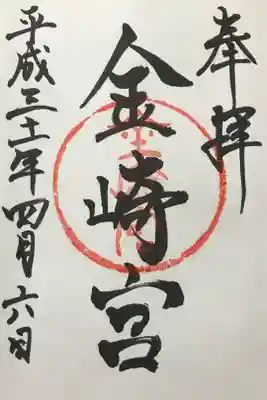 奉拝
金崎宮
平成三十一年四月六日